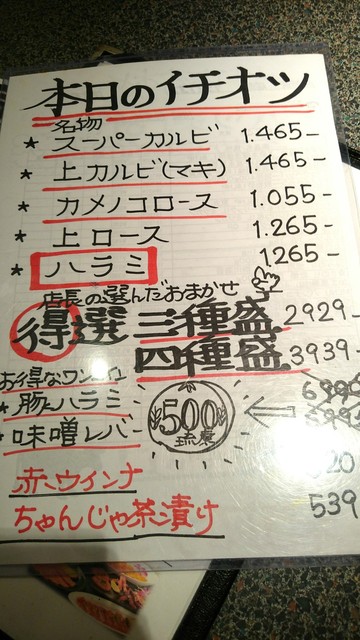 本日のイチオツ
名物
★ スーパーカルビ 1.465-
★ 上カルビ(マキ) 1.465-
★ カメノコロース 1.055-
★ 上ロース 1.265-
★ ハラミ 1265-
店長の選んだおまかせ
得選 三種盛 2929-
四種盛 3939-
お得なワンコイン
★ 豚ハラミ
★ 味噌レバー
500
赤ウインナ
ちゃんじゃ茶漬け 539